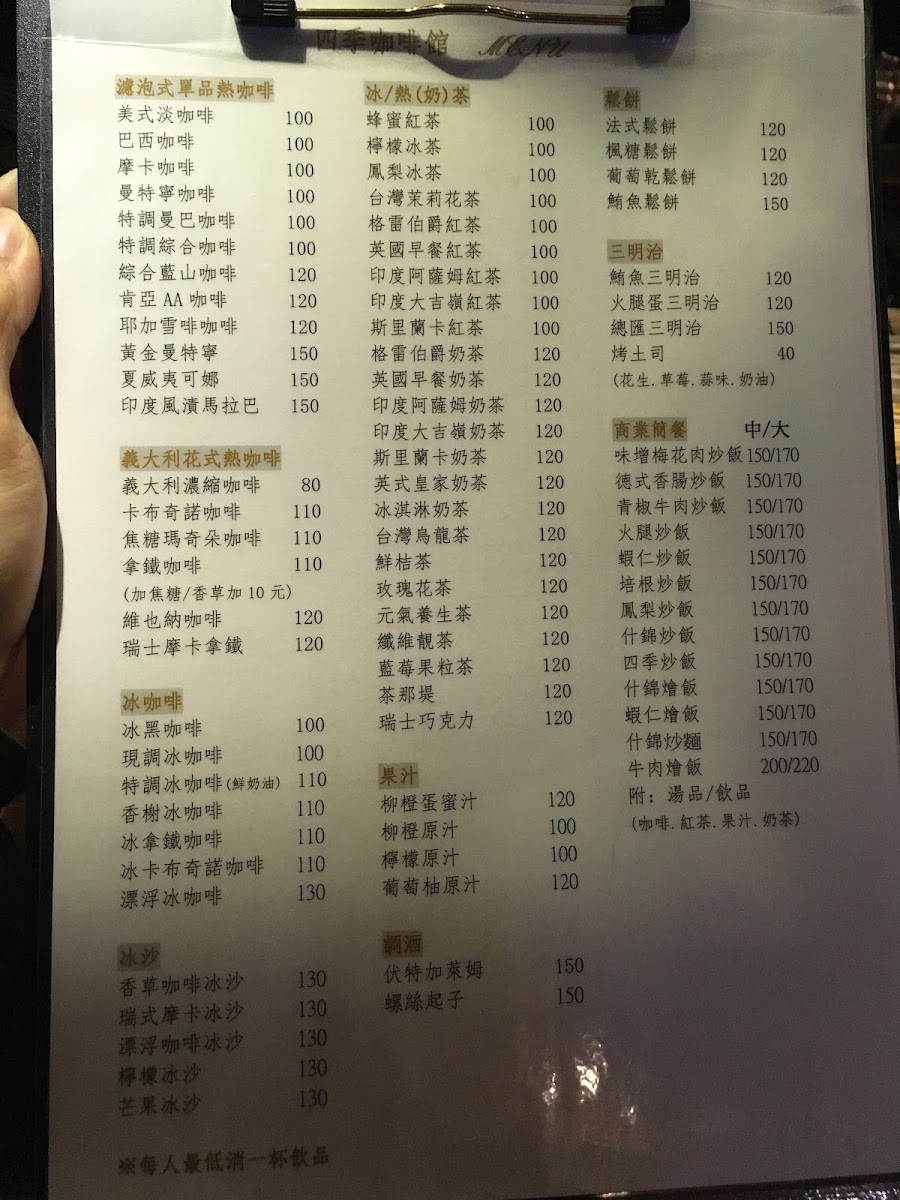 四季咖啡館 MENU
濾泡式單品熱咖啡
美式淡咖啡 100
巴西咖啡 100
摩卡咖啡 100
曼特寧咖啡 100
特調曼巴咖啡 100
特調綜合咖啡 100
綜合藍山咖啡 120
肯亞 AA 咖啡 120
耶加雪啡咖啡 120
黃金曼特寧 150
夏威夷可娜 150
印度風漬馬拉巴 150
義大利花式熱咖啡
義大利濃縮咖啡 80
卡布奇諾咖啡 110
焦糖瑪奇朵咖啡 110
拿鐵咖啡 110
(加焦糖/香草加 10 元)
維也納咖啡 120
瑞士摩卡拿鐵 120
冰咖啡
冰黑咖啡 100
現調冰咖啡 100
特調冰咖啡(鮮奶油) 110
香榭冰咖啡 110
冰拿鐵咖啡 110
冰卡布奇諾咖啡 110
漂浮冰咖啡 130
冰沙
香草咖啡冰沙 130
瑞式摩卡冰沙 130
漂浮咖啡冰沙 130
檸檬冰沙 130
芒果冰沙 130
※每人最低消一杯飲品
冰/熱(奶)茶
蜂蜜紅茶 100
檸檬冰茶 100
鳳梨冰茶 100
台灣茉莉花茶 100
格雷伯爵紅茶 100
英國早餐紅茶 100
印度阿薩姆紅茶 100
印度大吉嶺紅茶 100
斯里蘭卡紅茶 100
格雷伯爵奶茶 120
英國早餐奶茶 120
印度阿薩姆奶茶 120
印度大吉嶺奶茶 120
斯里蘭卡奶茶 120
英式皇家奶茶 120
冰淇淋奶茶 120
台灣烏龍茶 120
鮮桔茶 120
玫瑰花茶 120
元氣養生茶 120
纖維靚茶 120
藍莓果粒茶 120
茶那堤 120
瑞士巧克力 120
果汁
柳橙蛋蜜汁 120
柳橙原汁 100
檸檬原汁 100
葡萄柚原汁 120
調酒
伏特加萊姆 150
螺絲起子 150
鬆餅
法式鬆餅 120
楓糖鬆餅 120
葡萄乾鬆餅 120
鮪魚鬆餅 150
三明治
鮪魚三明治 120
火腿蛋三明治 120
總匯三明治 150
烤土司 40
(花生.草莓.蒜味.奶油)
商業簡餐 中/大
味增梅花肉炒飯 150/170
德式香腸炒飯 150/170
青椒牛肉炒飯 150/170
火腿炒飯 150/170
蝦仁炒飯 150/170
培根炒飯 150/170
鳳梨炒飯 150/170
什錦炒飯 150/170
四季炒飯 150/170
什錦燴飯 150/170
蝦仁燴飯 150/170
什錦炒麵 150/170
牛肉燴飯 200/220
附: 湯品/飲品
(咖啡.紅茶.果汁.奶茶)